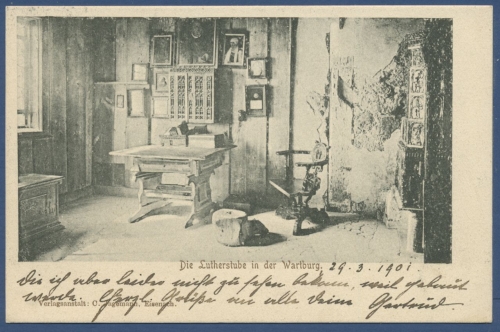 Die Lutherstube in der Wartburg. 29.3.1901
die ich aber leider nicht zu sehen bekam, weil gebaut
wurde. Herzl. Grüße an alle Deine Gertrud.
Verlagsanstalt: C. Jagemann, Eisenach.